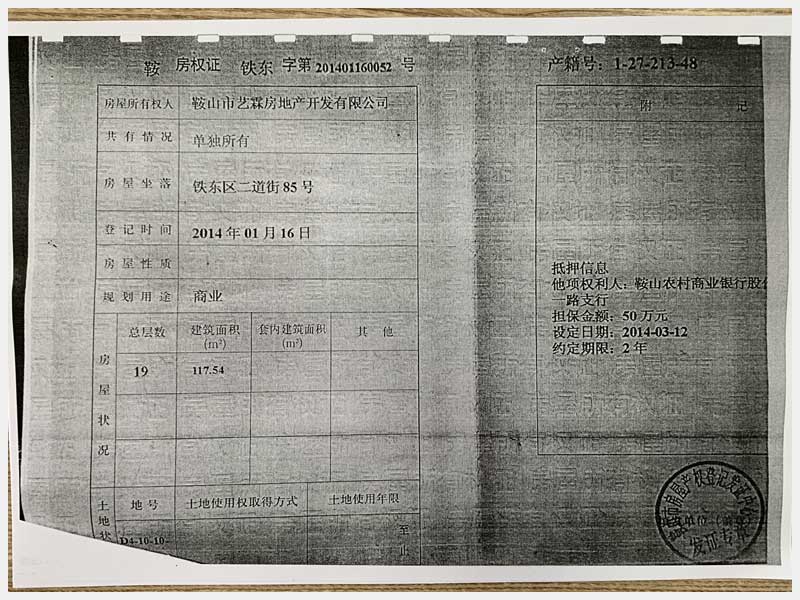 鞍 房权证 铁东 字第 201401160052 号
产籍号：1-27-213-48
房屋所有权人 鞍山市艺霖房地产开发有限公司
共有情况 单独所有
房屋坐落 铁东区二道街 85 号
登记时间 2014 年 01 月 16 日
房屋性质
规划用途 商业
房屋状况
总层数 建筑面积(m²) 套内建筑面积(m²) 其他
19 117.54
土地状
地号 土地使用权取得方式 土地使用年限
D4-10-10- 至
止
附 记
抵押信息
他项权利人：鞍山农村商业银行股份
一路支行
担保金额：50 万元
设定日期：2014-03-12
约定期限：2 年
房屋产权登记发证中心
发证专